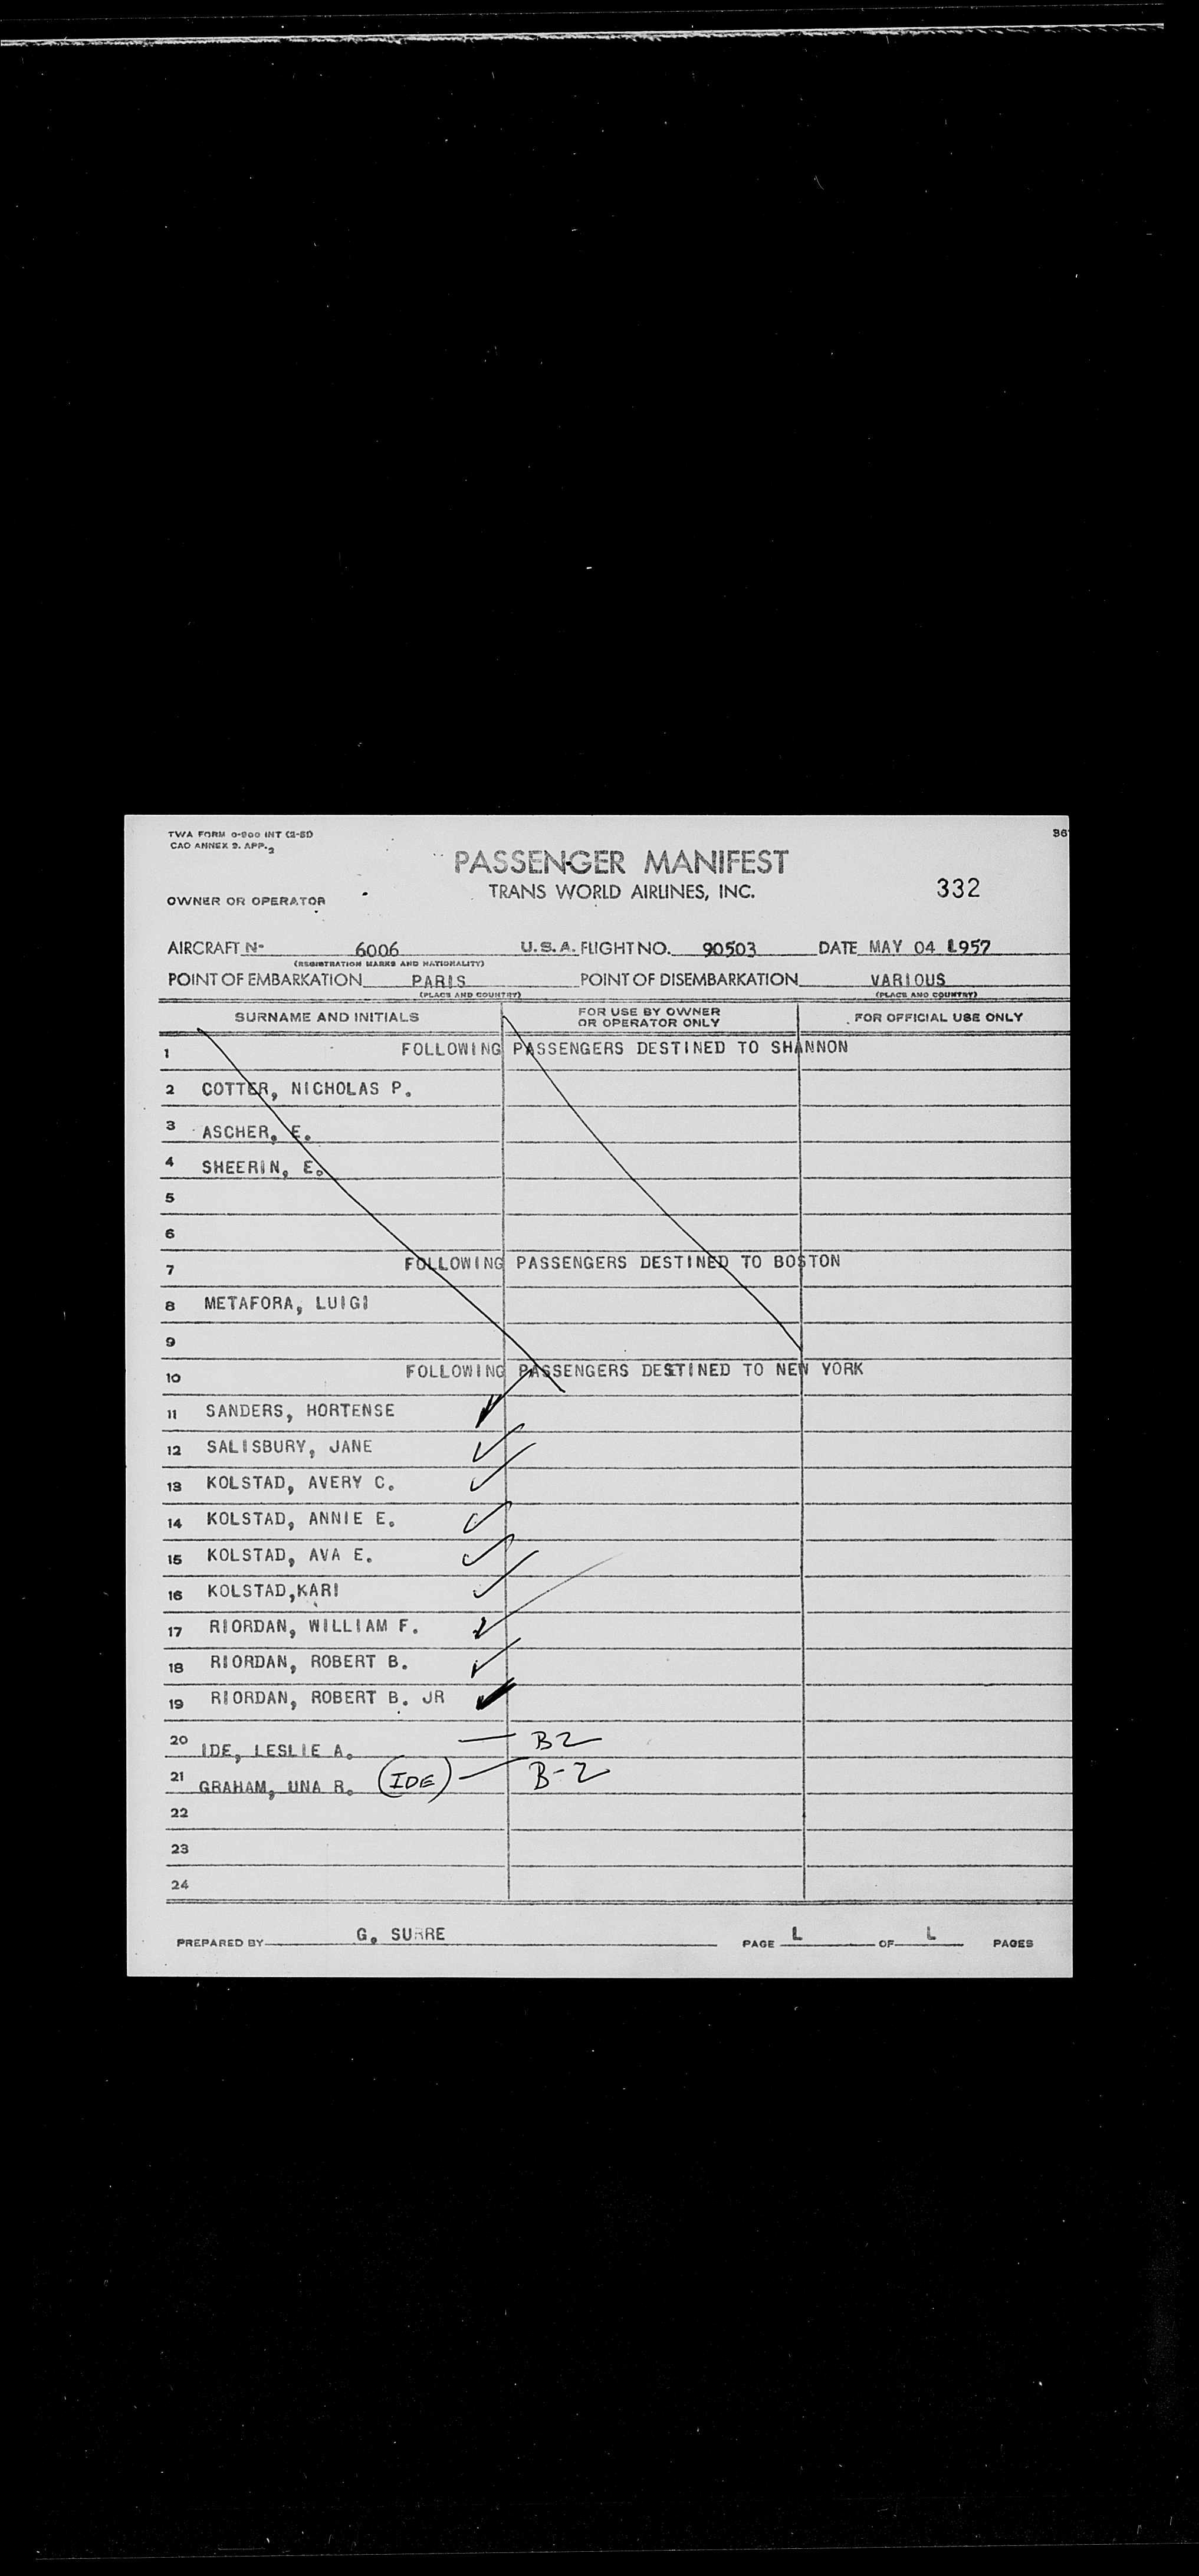 TWA FORM 0-900 INT (2-51)
CAO ANNEX 9. APP. 2
36
PASSENGER MANIFEST
TRANS WORLD AIRLINES, INC.
332
OWNER OR OPERATOR
AIRCRAFT N- 6006 U.S.A. FLIGHT NO. 90503 DATE MAY 04 1957
(REGISTRATION MARKS AND NATIONALITY)
POINT OF EMBARKATION PARIS POINT OF DISEMBARKATION VARIOUS
(PLACE AND COUNTRY) (PLACE AND COUNTRY)
SURNAME AND INITIALS FOR USE BY OWNER OR OPERATOR ONLY FOR OFFICIAL USE ONLY
1 FOLLOWING PASSENGERS DESTINED TO SHANNON
2 COTTER, NICHOLAS P.
3 ASCHER, E.
4 SHEERIN, E.
5
6
7 FOLLOWING PASSENGERS DESTINED TO BOSTON
8 METAFORA, LUIGI
9
10 FOLLOWING PASSENGERS DESTINED TO NEW YORK
11 SANDERS, HORTENSE
12 SALISBURY, JANE
13 KOLSTAD, AVERY C.
14 KOLSTAD, ANNIE E.
15 KOLSTAD, AVA E.
16 KOLSTAD,KARI
17 RIORDAN, WILLIAM F.
18 RIORDAN, ROBERT B.
19 RIORDAN, ROBERT B. JR
20 IDE, LESLIE A. — B2
21 GRAHAM, UNA R. (IDE) — B-2
22
23
24
PREPARED BY G. SURRE PAGE L OF L PAGES